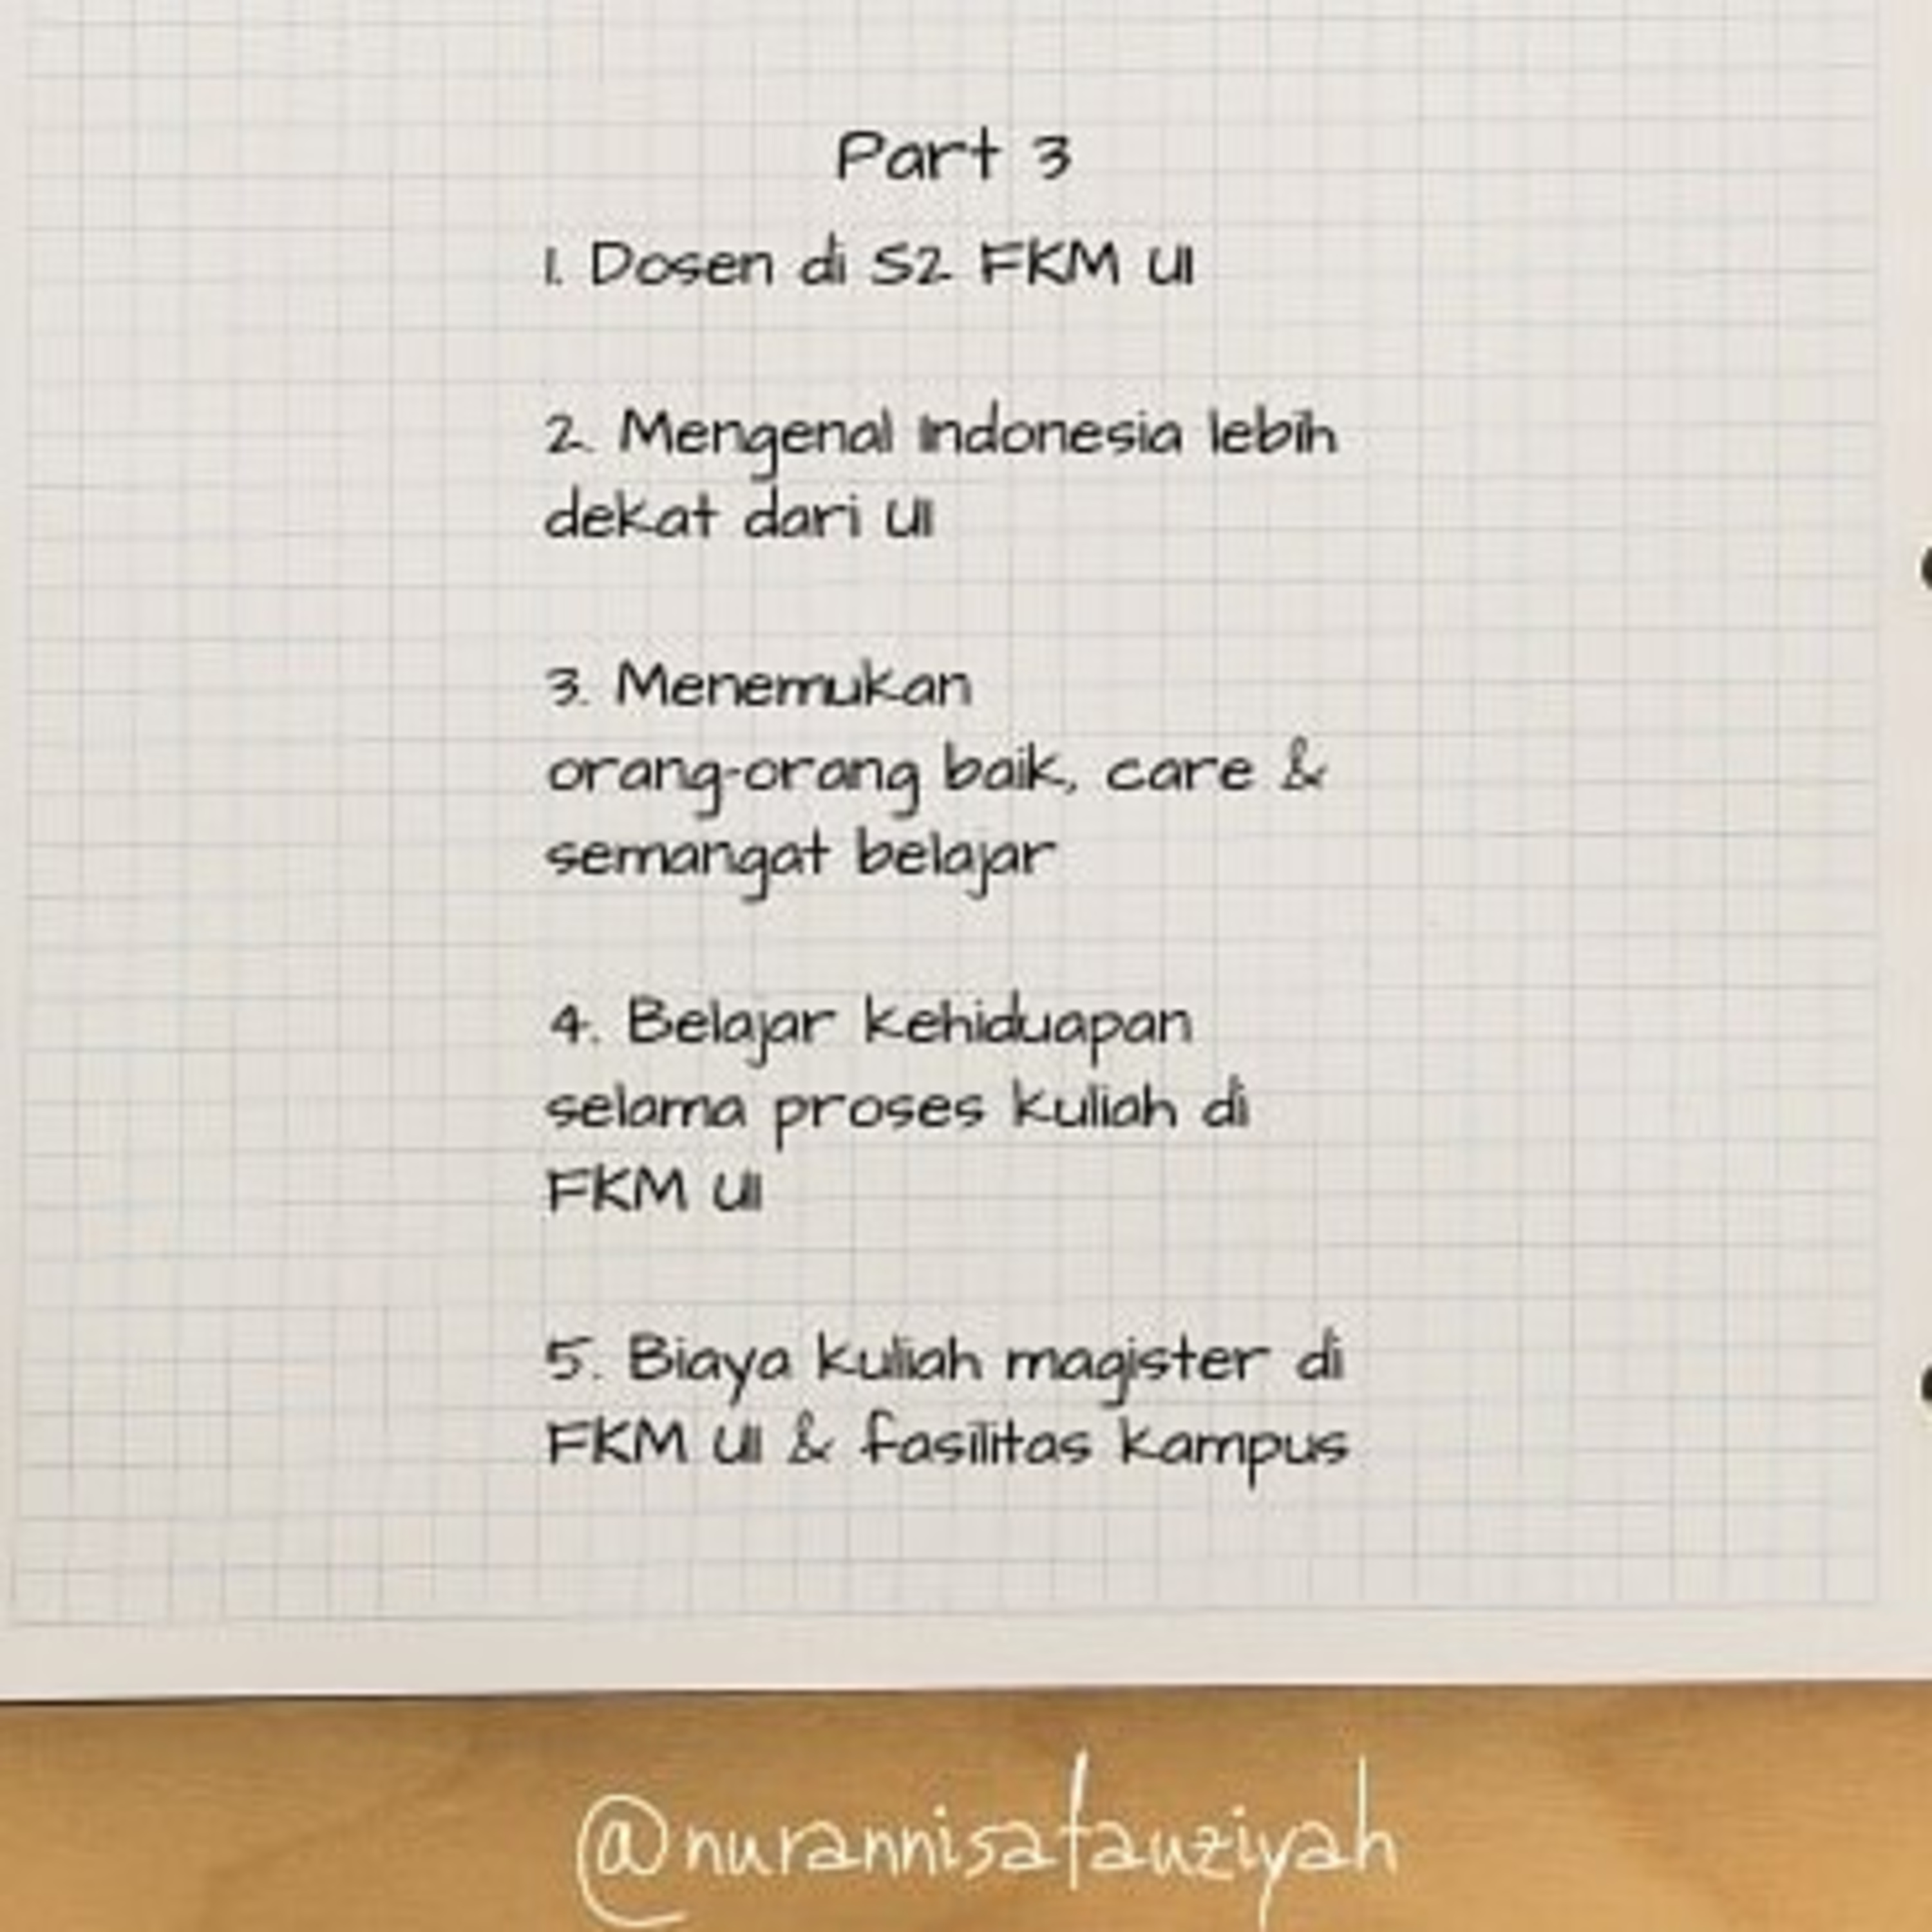 Part 3
1. Dosen di S2 FKM UI
2. Mengenal Indonesia lebih
dekat dari UI
3. Menemukan
orang-orang baik, care &
semangat belajar
4. Belajar kehiduapan
selama proses kuliah di
FKM UI
5. Biaya kuliah magister di
FKM UI & fasilitas kampus
@nurannisafauziyah